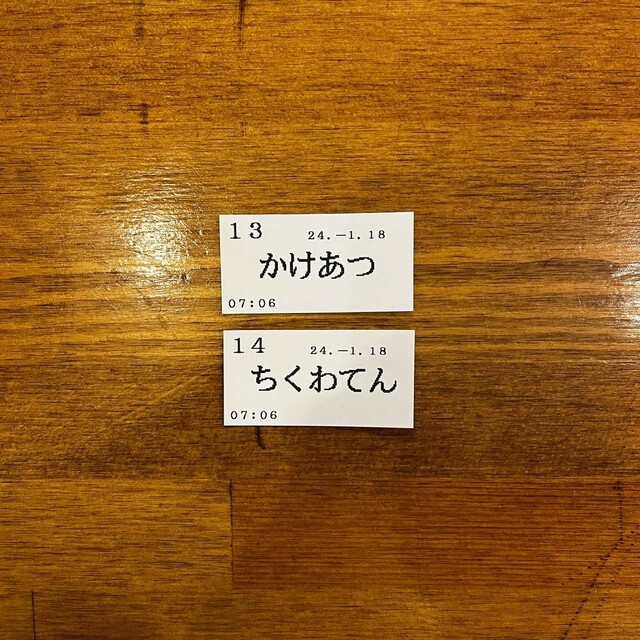 13 24.-1.18
かけあつ
07:06
14 24.-1.18
ちくわてん
07:06